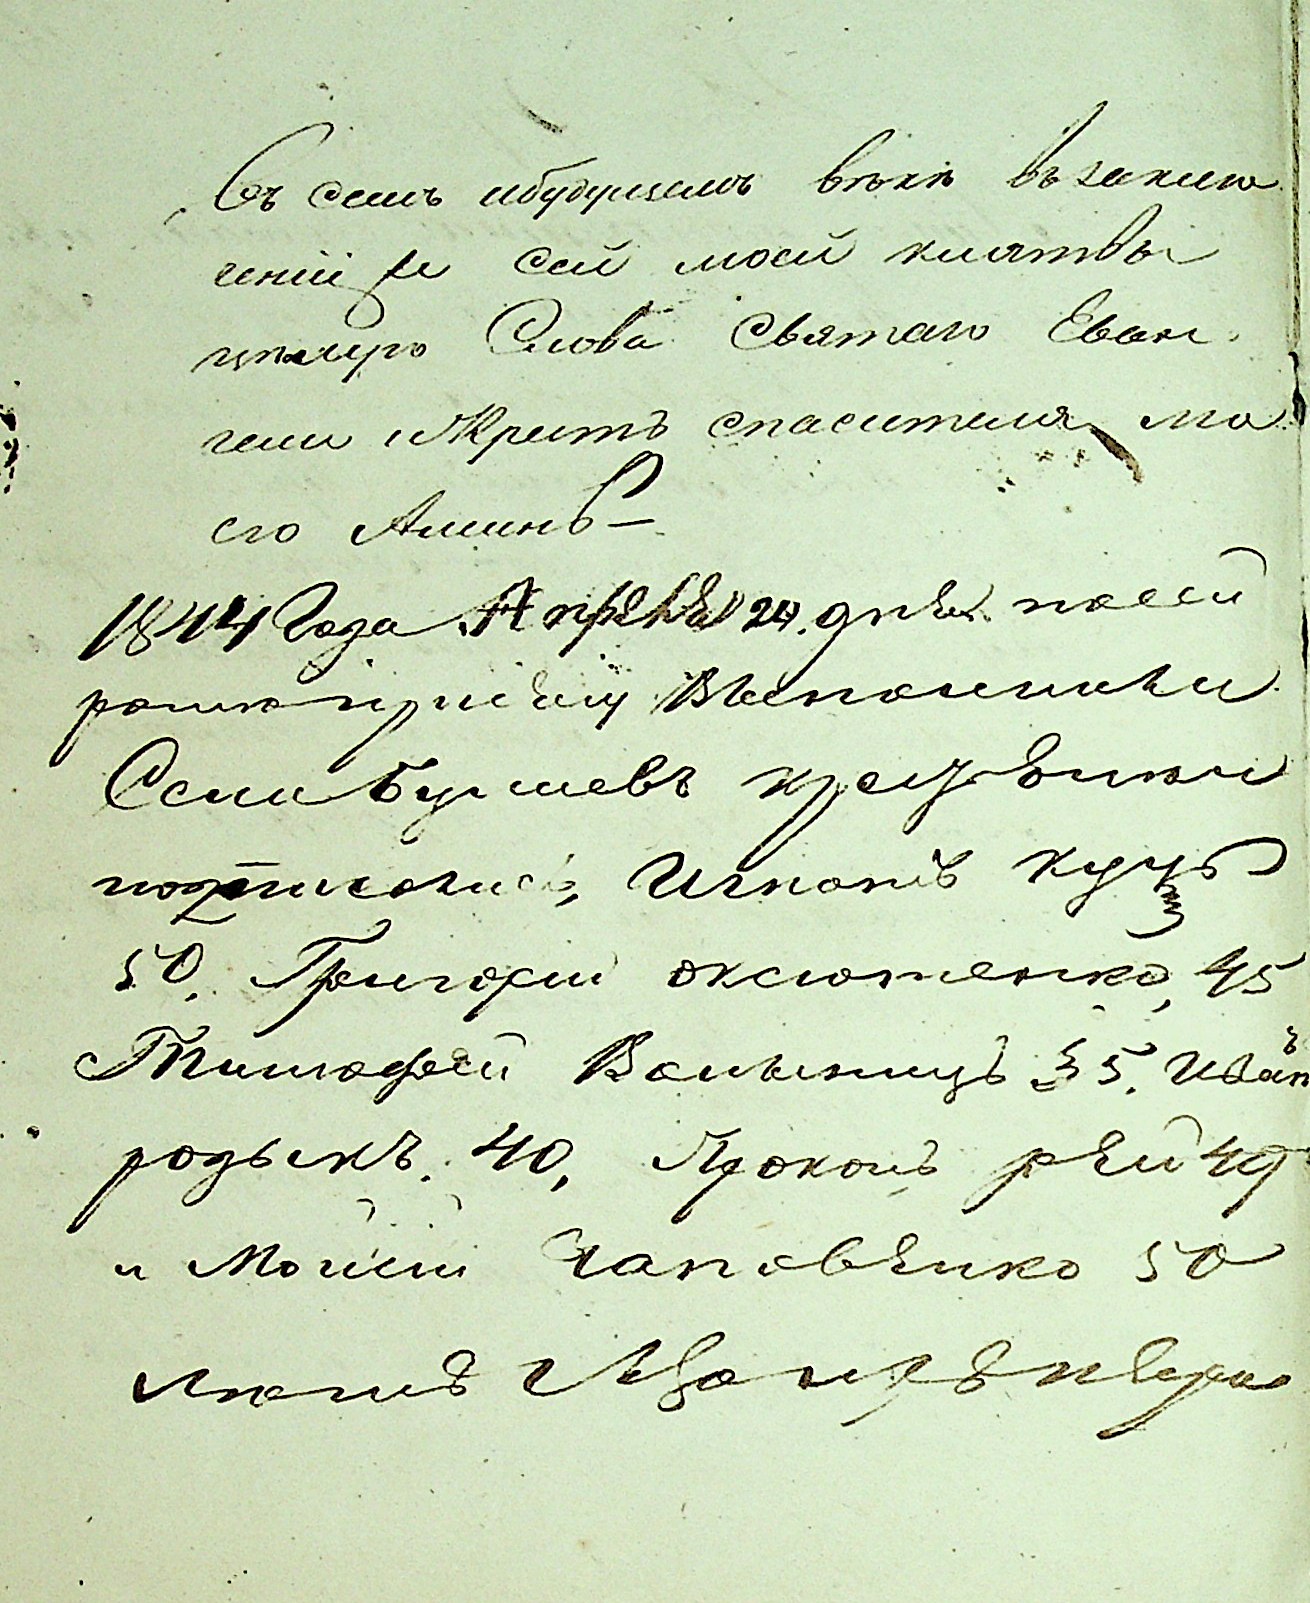 Въ семъ ибудущемъ вѣкѣ въ заклю
ченіи же сей моей клятвы
цѣлую Слова Святаго Еван
гели иКрестъ спасителя мо
его Аминь
1844 Года Апреля 24. дня посей
присягу выполнили
подписались, Игнатъ куцъ
50. Григорій оксютенко, 45
Тимофей Волынецъ 35. Иванъ
родыкъ. 40, Прокопъ рей 49
и Мойсей Чаповенко 50